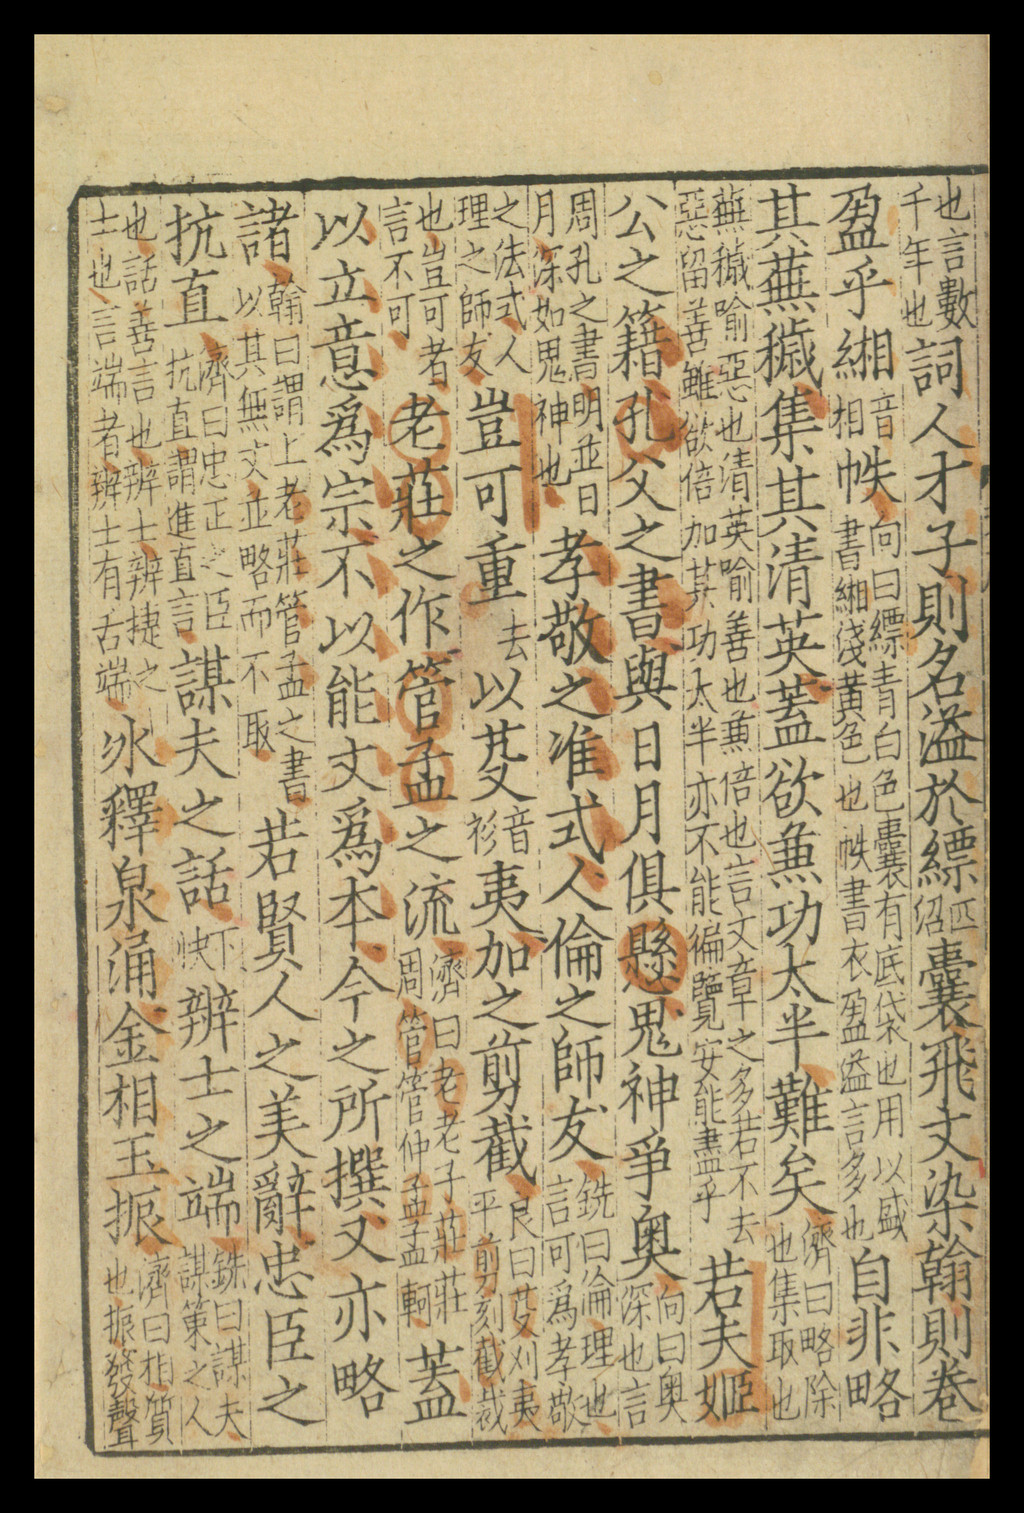 也言數千年也詞人才子則名溢於縹匹紹囊飛文染翰則卷
盈乎緗音相帙向曰縹青白色囊有底袋也用以盛書緗淺黃色也帙書衣盈溢言多也自非略
其蕪穢集其清英蓋欲兼功太半難矣濟曰略除也集取也
蕪穢喻惡也清英喻善也兼倍也言文章之多若不去惡留善雖欲倍加其功太半亦不能徧覽安能盡乎若夫姬
公之籍孔父之書與日月俱懸鬼神爭奧向曰奧深也言
周孔之書明並日月深如鬼神也孝敬之准式人倫之師友銑曰倫理也言可爲孝敬
之法式人理之師友豈可重去以芟音衫夷加之剪截良曰芟刈夷平剪刻截裁
也豈可者言不可老莊之作管孟之流濟曰老老子莊莊周管管仲孟孟軻蓋
以立意爲宗不以能文爲本今之所撰又亦略
諸翰曰謂上老莊管孟之書以其無文並略而不取若賢人之美辭忠臣之
抗直濟曰忠正之臣抗直謂進直言謀夫之話下快辨士之端銑曰謀夫謀策之人
也話善言也辨士辨捷之士也言端者辨士有舌端冰釋泉涌金相玉振濟曰相質也振發聲